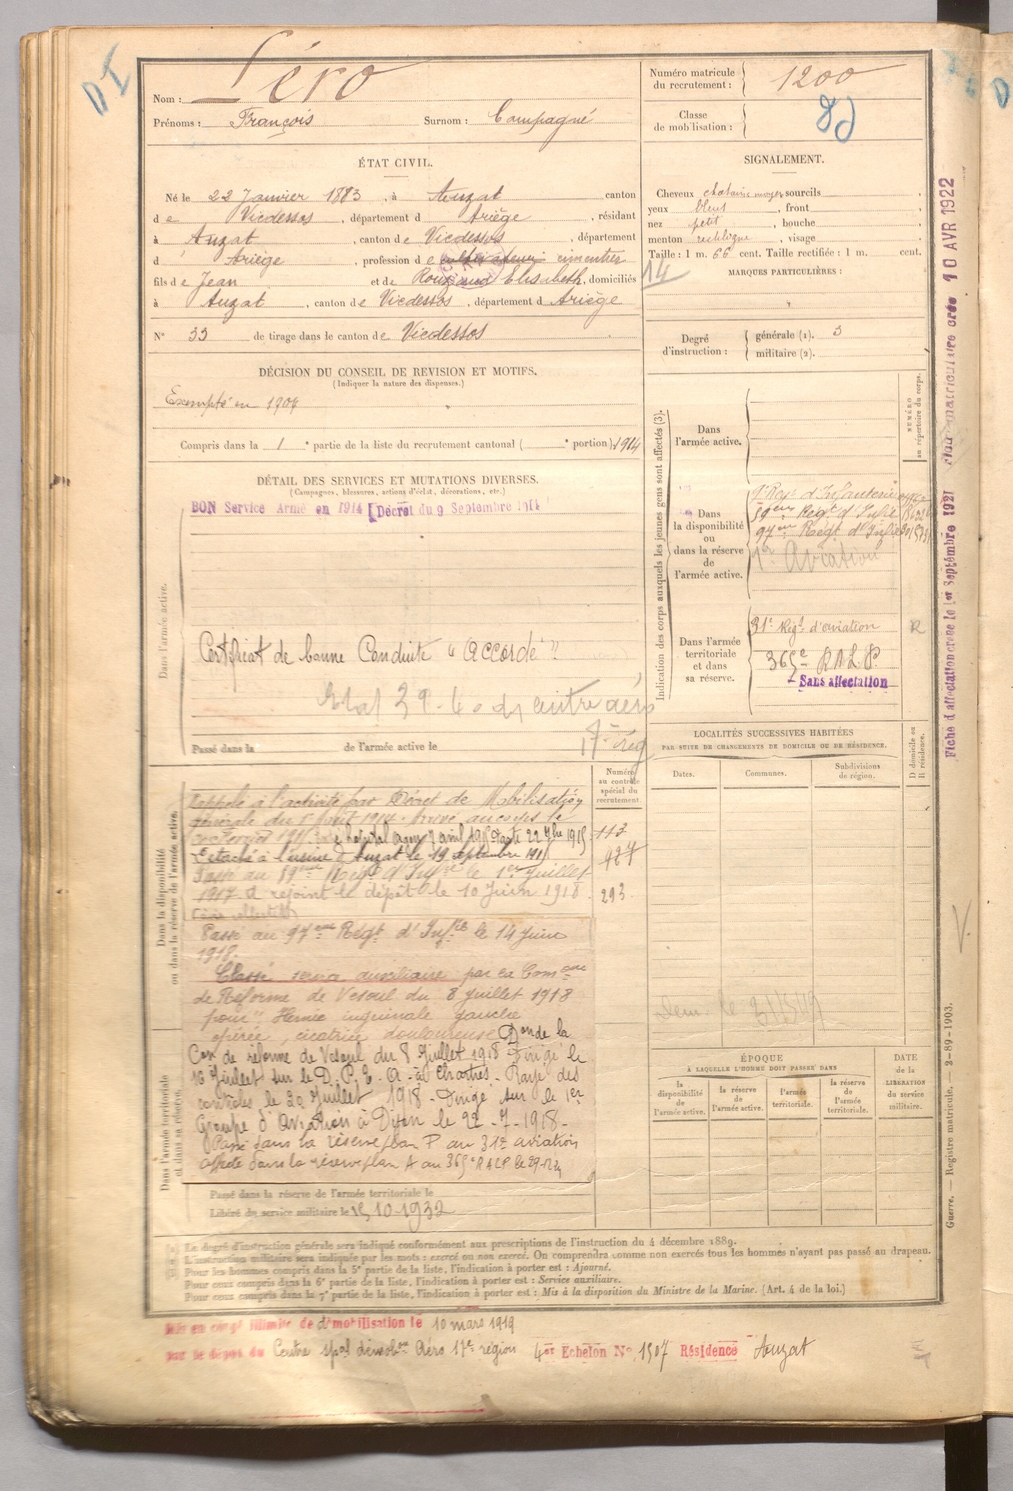 D I
Nom : Péro
Prénoms : François Surnom : Compagné
Numéro matricule du recrutement : 1200
Classe de mobilisation :
ÉTAT CIVIL.
Né le 22 Janvier 1883, à Auzat canton
de Vicdessos, département d Ariège, résidant
à Auzat, canton de Vicdessos, département
d Ariège, profession de cultivateur cimentier
fils de Jean et de Rougaud Elisabeth, domiciliés
à Auzat, canton de Vicdessos, département d Ariège
N° 33 de tirage dans le canton de Vicdessos
SIGNALEMENT.
Cheveux chatains moyen sourcils
yeux bleus, front
nez petit, bouche
menton rectiligne, visage
Taille : 1 m. 66 cent. Taille rectifiée : 1 m. cent.
14
MARQUES PARTICULIÈRES :
Degré d'instruction : générale (1). 3
militaire (2).
DÉCISION DU CONSEIL DE REVISION ET MOTIFS.
(Indiquer la nature des dispenses.)
Exempté en 1904
Compris dans la 1 e partie de la liste du recrutement cantonal ( e portion) 1914
DÉTAIL DES SERVICES ET MUTATIONS DIVERSES.
(Campagnes, blessures, actions d'éclat, décorations, etc.)
BON Service Armé en 1914 [Décret du 9 Septembre 1914
Dans l'armée active.
Certificat de bonne Conduite "Accordé"
Passé dans la de l'armée active le
17e rég
Indication des corps auxquels les jeunes gens sont affectés (3).
NUMÉRO au répertoire du corps.
Dans l'armée active.
Dans la disponibilité ou dans la réserve de l'armée active.
Regt d'Infanterie
59eme Regt d'Infie
97eme Regt d'Infie
1er Aviation
Dans l'armée territoriale et dans sa réserve.
31e Regt d'aviation
R
365e RALP.
Sans affectation
LOCALITÉS SUCCESSIVES HABITÉES
PAR SUITE DE CHANGEMENTS DE DOMICILE OU DE RÉSIDENCE.
D domicile ou R résidence.
Dates. Communes. Subdivisions de région.
Numéro au contrôle spécial du recrutement.
Dans la disponibilité ou dans la réserve de l'armée active.
Rappelé à l'activité par Décret de Mobilisation
générale du 1er Août 1914. Arrivé au corps le
113
Détaché à l'usine d'Auzat le 19 septembre 1915
427
Passé au 59eme Regt d'Infie le 1er Juillet
1917 a rejoint le dépôt le 10 Juin 1918
293
Passé au 97eme Régt d'Infie le 14 Juin
1918.
Classé service auxiliaire par la Comon
de Réforme de Vesoul du 8 Juillet 1918
pour " Hernie inguinale gauche
opérée, cicatrice douloureuse Don de la
Con de réforme de Vesoul du 8 Juillet 1918 Dirigé le
16 Juillet sur le D. P. E. A. à Chartres. Rayé des
contrôles le 20 Juillet 1918. Dirigé sur le 1er
Groupe d'Aviation à Dijon le 22-7-1918-
Passé dans la réserve plan P au 31e aviation
Affecté dans la réserve plan A au 365e RALP le
Dans l'armée territoriale et dans sa réserve.
Passé dans la réserve de l'armée territoriale le
Libéré du service militaire le 15-10-1932
ÉPOQUE
À LAQUELLE L'HOMME DOIT PASSER DANS
la disponibilité de l'armée active.
la réserve de l'armée active.
l'armée territoriale.
la réserve de l'armée territoriale.
DATE de la LIBÉRATION du service militaire.
(1) Le degré d'instruction générale sera indiqué conformément aux prescriptions de l'instruction du 4 décembre 1889.
L'instruction militaire sera indiquée par les mots : exercé ou non exercé. On comprendra comme non exercés tous les hommes n'ayant pas passé au drapeau.
Pour les hommes compris dans la 5e partie de la liste, l'indication à porter est : Ajourné.
Pour ceux compris dans la 6e partie de la liste, l'indication à porter est : Service auxiliaire.
Pour ceux compris dans la 7e partie de la liste, l'indication à porter est : Mis à la disposition du Ministre de la Marine. (Art. 4 de la loi.)
Mis en congé illimité de démobilisation le 10 mars 1919
par le dépôt du Centre spal démobon Aéro 17e région 4er Echelon N° 1507 Résidence Auzat
Guerre. — Registre matricule. — 2-89-1903.
Fiche d'affectation créée le 1er Septembre 1921
Fiche matriculaire créée 10 AVR 1922